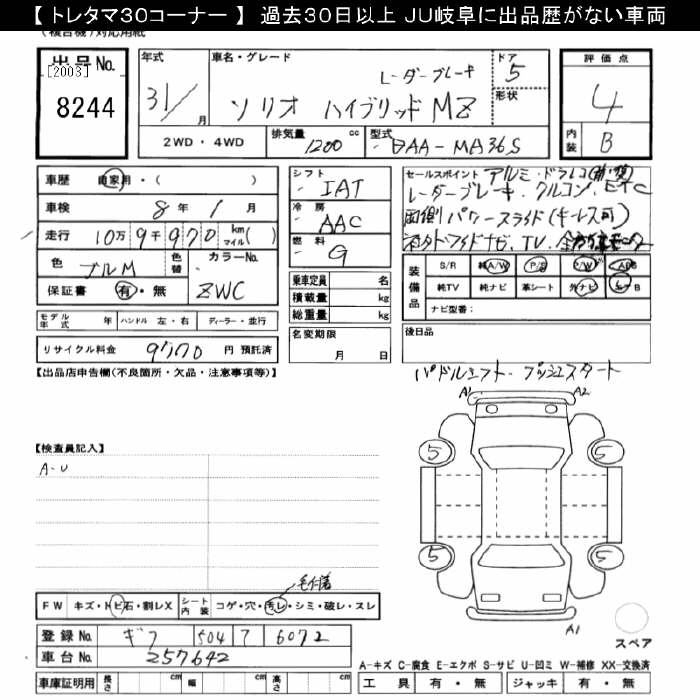 【トレタマ30コーナー】 過去30日以上 JU岐阜に出品歴がない車両
(複合機)対応用紙
出品No.
[2003]
8244
年式
31/ 月
車名・グレード
レーダーブレーキ
ソリオ ハイブリッドMZ
ドア
5
形状
評価点
4
内装 B
2WD・4WD
排気量 1200 cc
型式 DAA-MA36S
車歴 自家用・( )
車検 8年 1月
走行 10万9千970 km(マイル)
色 ブルM 色替
カラーNo. ZWC
保証書 有・無
シフト IAT
冷房 AAC
燃料 G
乗車定員 名
積載量 kg
総重量 kg
セールスポイント アルミ・ドラレコ
レーダーブレーキ、クルコン、ETC
両側パワースライド(キーレス可)
TV、全方位モニター
装備品
S/R 純A/W P/S P/W ABS
純TV 純ナビ 革シート 外ナビ エアB
ナビ型番:
モデル年式 年 ハンドル 左・右 ディーラー・並行
名変期限
月 日
後日品
リサイクル料金 9770 円 預託済
【出品店申告欄(不良箇所・欠品・注意事項等)】
パドルシフト・プッシュスタート
A1 A2
5 5
5 5
A1
スペア
【検査員記入】
A-U
FW キズ・トビ石・割レX シート内装 コゲ・穴・汚レ・シミ・破レ・スレ
登録No. ギフ 504 7 6072
車台No. 257642
車庫証明用 長さ cm 幅 cm 高さ cm
A-キズ C-腐食 E-エクボ S-サビ U-凹ミ W-補修 XX-交換済
工具 有・無 ジャッキ 有・無